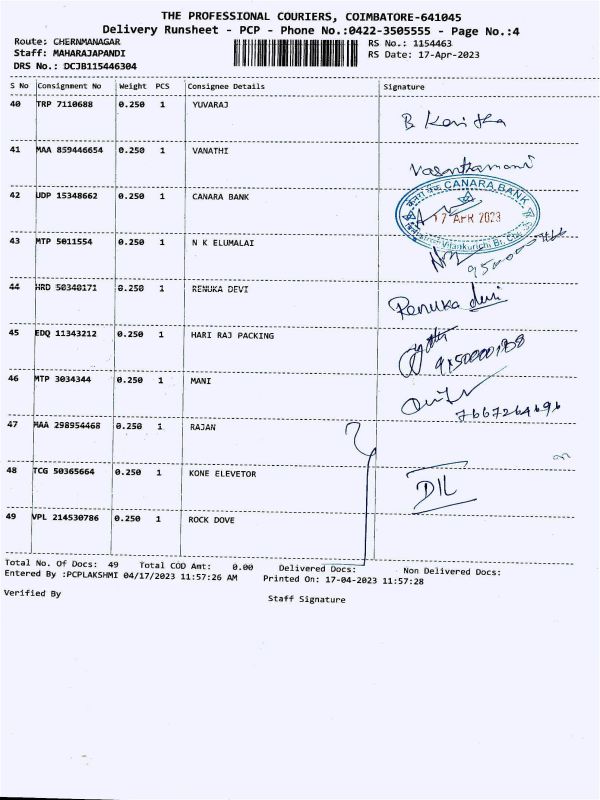 THE PROFESSIONAL COURIERS, COIMBATORE-641045
Delivery Runsheet - PCP - Phone No.:0422-3505555 - Page No.:4
Route: CHERNMANAGAR RS No.: 1154463
Staff: MAHARAJAPANDI RS Date: 17-Apr-2023
DRS No.: DCJB115446304
S No Consignment No Weight PCS Consignee Details Signature
40 TRP 7110688 0.250 1 YUVARAJ
41 MAA 859446654 0.250 1 VANATHI
42 UDP 15348662 0.250 1 CANARA BANK
CANARA BANK
17 APR 2023
43 MTP 5011554 0.250 1 N K ELUMALAI
44 HRD 50340171 0.250 1 RENUKA DEVI Renuka devi
45 EDQ 11343212 0.250 1 HARI RAJ PACKING
46 MTP 3034344 0.250 1 MANI
7667264696
47 MAA 298954468 0.250 1 RAJAN
48 TCG 50365664 0.250 1 KONE ELEVETOR DIL
49 VPL 214530786 0.250 1 ROCK DOVE
Total No. Of Docs: 49 Total COD Amt: 0.00 Delivered Docs: Non Delivered Docs:
Entered By :PCPLAKSHMI 04/17/2023 11:57:26 AM Printed On: 17-04-2023 11:57:28
Verified By Staff Signature